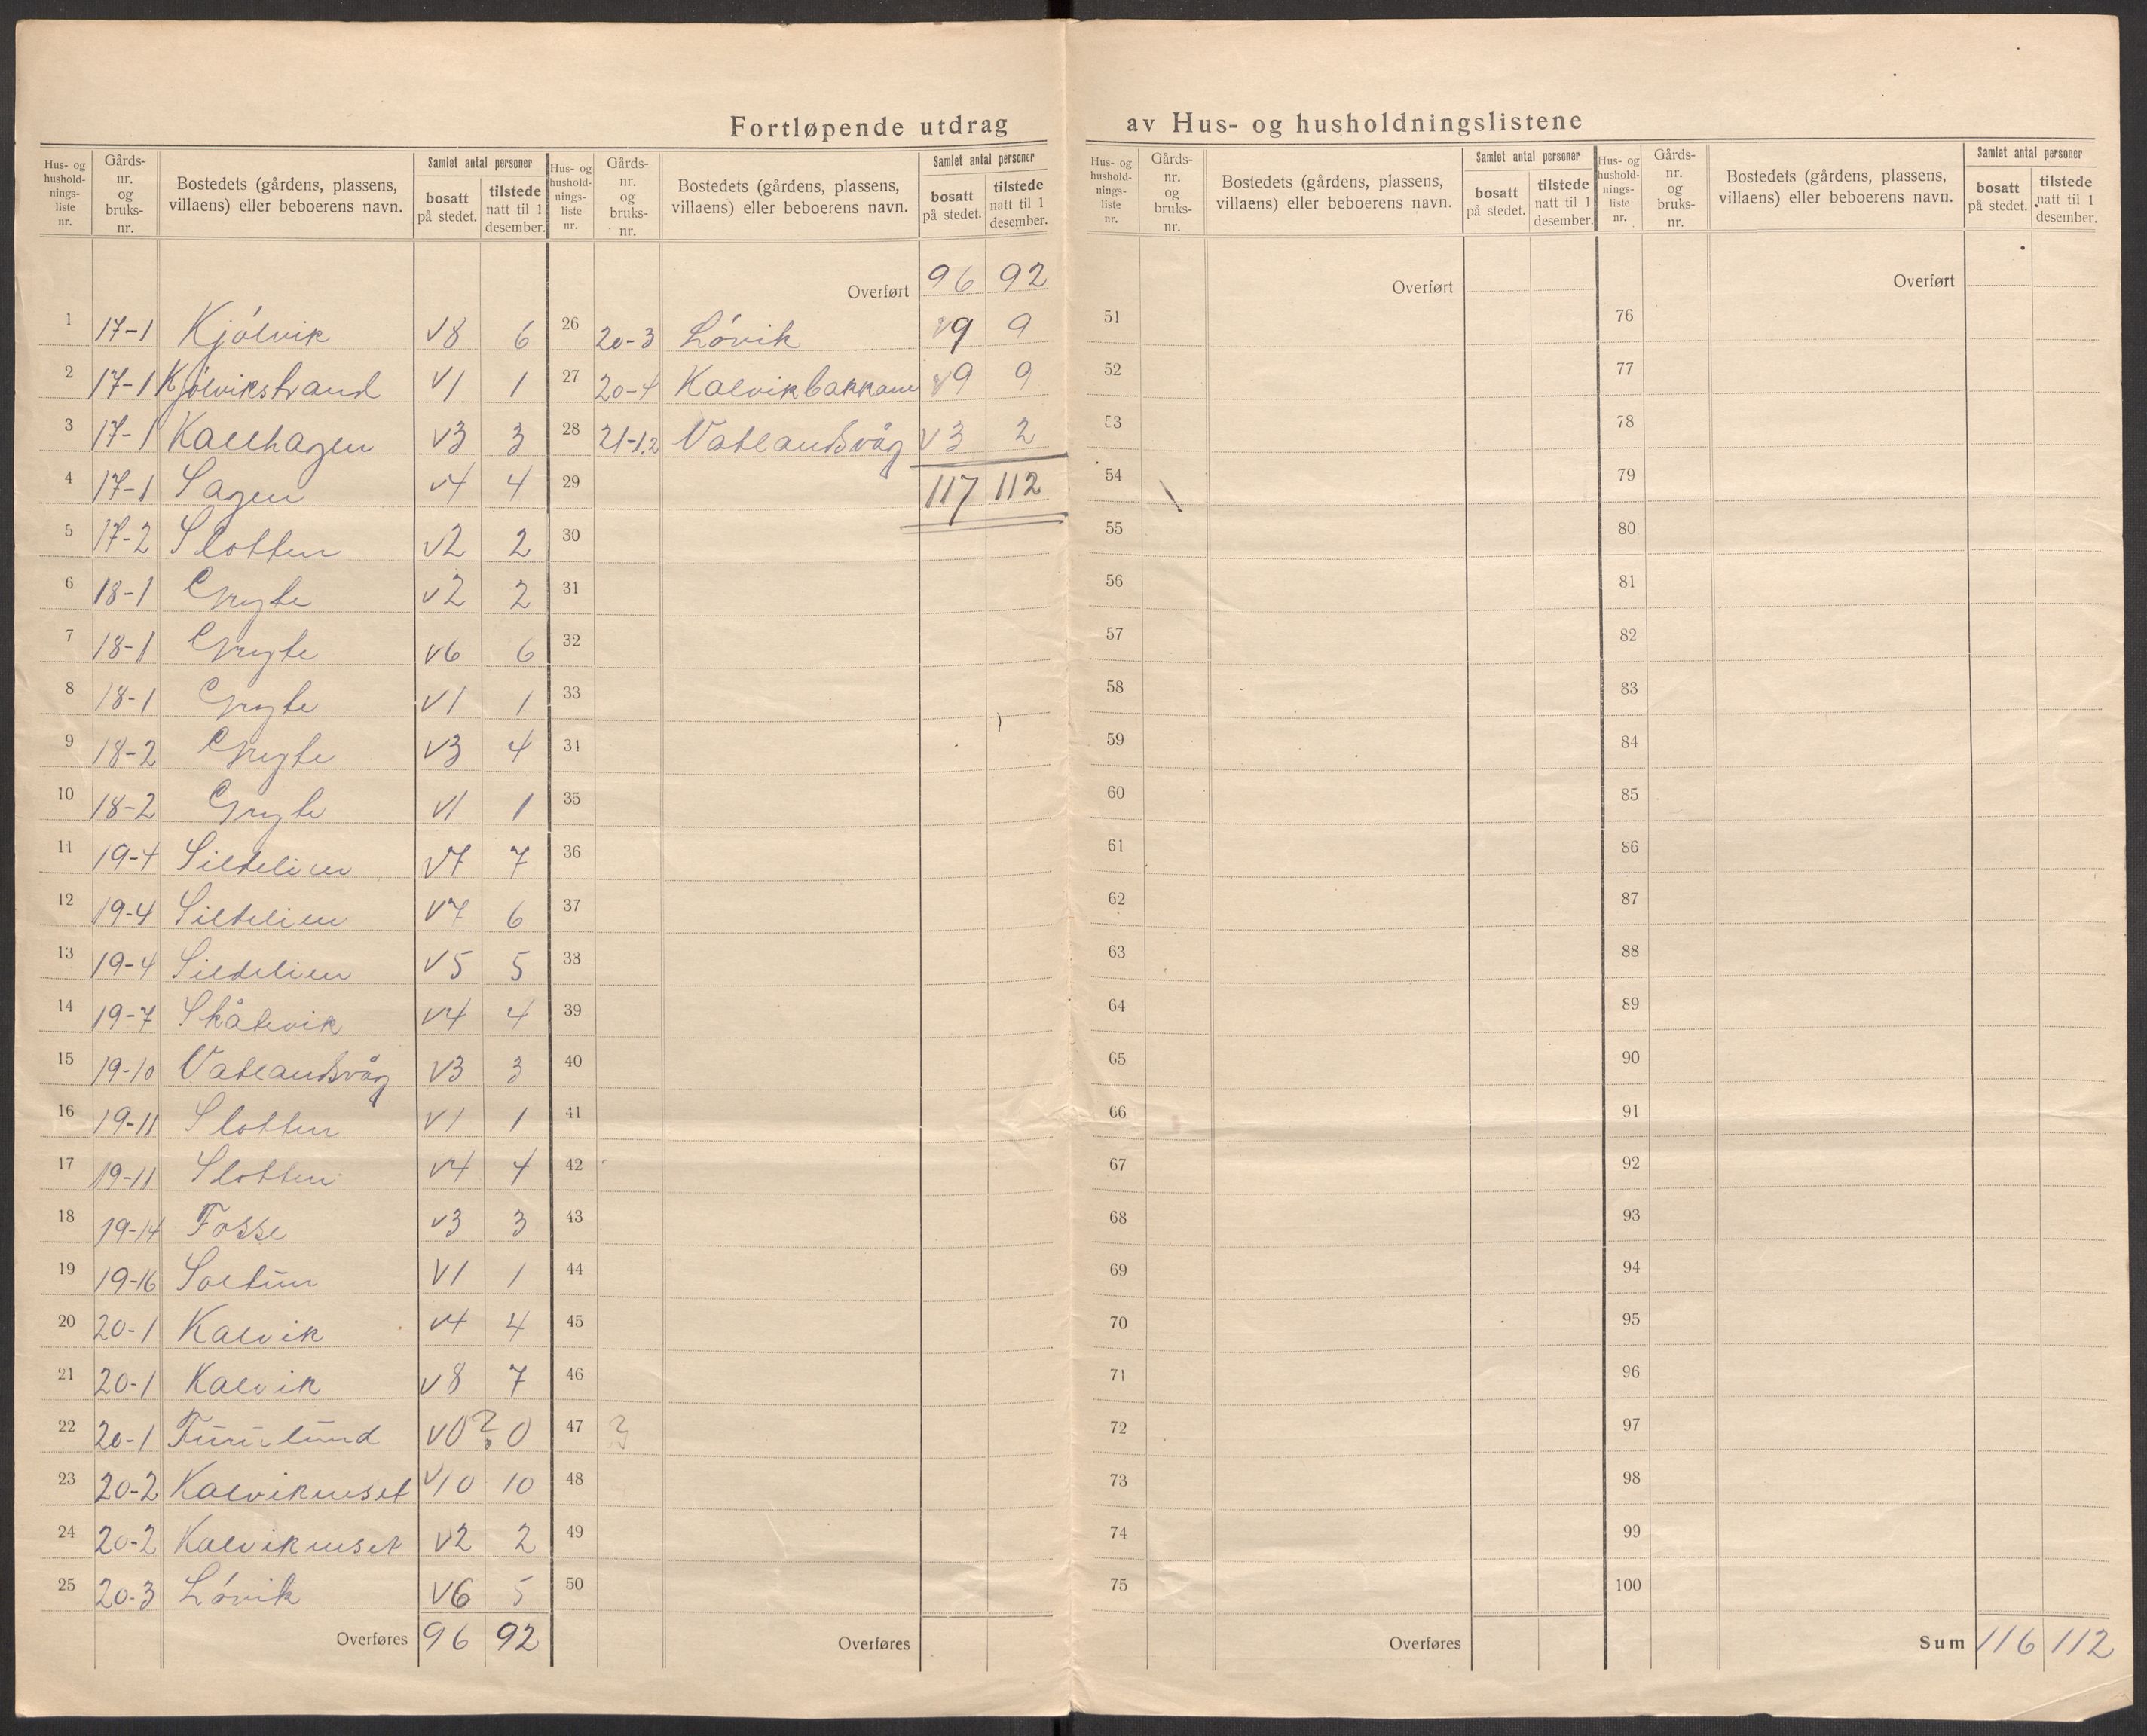 Fortløpende utdrag av Hus- og husholdningslistene
Hus- og hushold-nings-liste nr. | Gårds-nr. og bruks-nr. | Bostedets (gårdens, plassens, villaens) eller beboerens navn. | Samlet antal personer | bosatt på stedet. | tilstede natt til 1 desember.
1 17-1 Kjølvik v8 6
2 17-1 Kjølvikstrand v1 1
3 17-1 Kalhagen v3 3
4 17-1 Sagen v4 4
5 17-2 Slotten v2 2
6 18-1 Gryte v2 2
7 18-1 Gryte v6 6
8 18-1 Gryte v1 1
9 18-2 Gryte v3 4
10 18-2 Gryte v1 1
11 19-4 Sildelien v7 7
12 19-4 Sildelien v7 6
13 19-4 Sildelien v5 5
14 19-7 Skålevik v4 4
15 19-10 Vatlandsvåg v3 3
16 19-11 Slotten v1 1
17 19-11 Slotten v4 4
18 19-14 Fosse v3 3
19 19-16 Soltun v1 1
20 20-1 Kalvik v4 4
21 20-1 Kalvik v8 7
22 20-1 Furulund v0? 0
23 20-2 Kalvikneset v10 10
24 20-2 Kalvikneset v2 2
25 20-3 Løvik v6 5
Overføres 96 92
Hus- og hushold-nings-liste nr. | Gårds-nr. og bruks-nr. | Bostedets (gårdens, plassens, villaens) eller beboerens navn. | Samlet antal personer | bosatt på stedet. | tilstede natt til 1 desember.
Overført 96 92
26 20-3 Løvik v9 9
27 20-4 Kalvikbakkane v9 9
28 21-1,2 Vatlandsvåg v3 2
29 117 112
30
31
32
33
34
35
36
37
38
39
40
41
42
43
44
45
46
47 ?
48
49
50
Overføres
Hus- og hushold-nings-liste nr. | Gårds-nr. og bruks-nr. | Bostedets (gårdens, plassens, villaens) eller beboerens navn. | Samlet antal personer | bosatt på stedet. | tilstede natt til 1 desember.
Overført
51
52
53
54
55
56
57
58
59
60
61
62
63
64
65
66
67
68
69
70
71
72
73
74
75
Overføres
Hus- og hushold-nings-liste nr. | Gårds-nr. og bruks-nr. | Bostedets (gårdens, plassens, villaens) eller beboerens navn. | Samlet antal personer | bosatt på stedet. | tilstede natt til 1 desember.
Overført
76
77
78
79
80
81
82
83
84
85
86
87
88
89
90
91
92
93
94
95
96
97
98
99
100
Sum 116 112